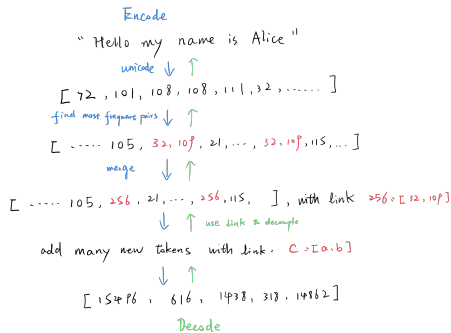 Encode
"Hello my name is Alice"
unicode
[ 72, 101, 108, 108, 111, 32, ...... ]
find most frequare pairs
[ ····· 105, 32, 109, 21, ... 32, 109, 115, ... ]
merge
[ ····· 105, 256, 21, ... 256, 115, ], with link 256:[32, 109]
use link to decouple
add many new tokens with link. C:[a,b]
[15496, 616, 1438, 318, 14862]
Decode